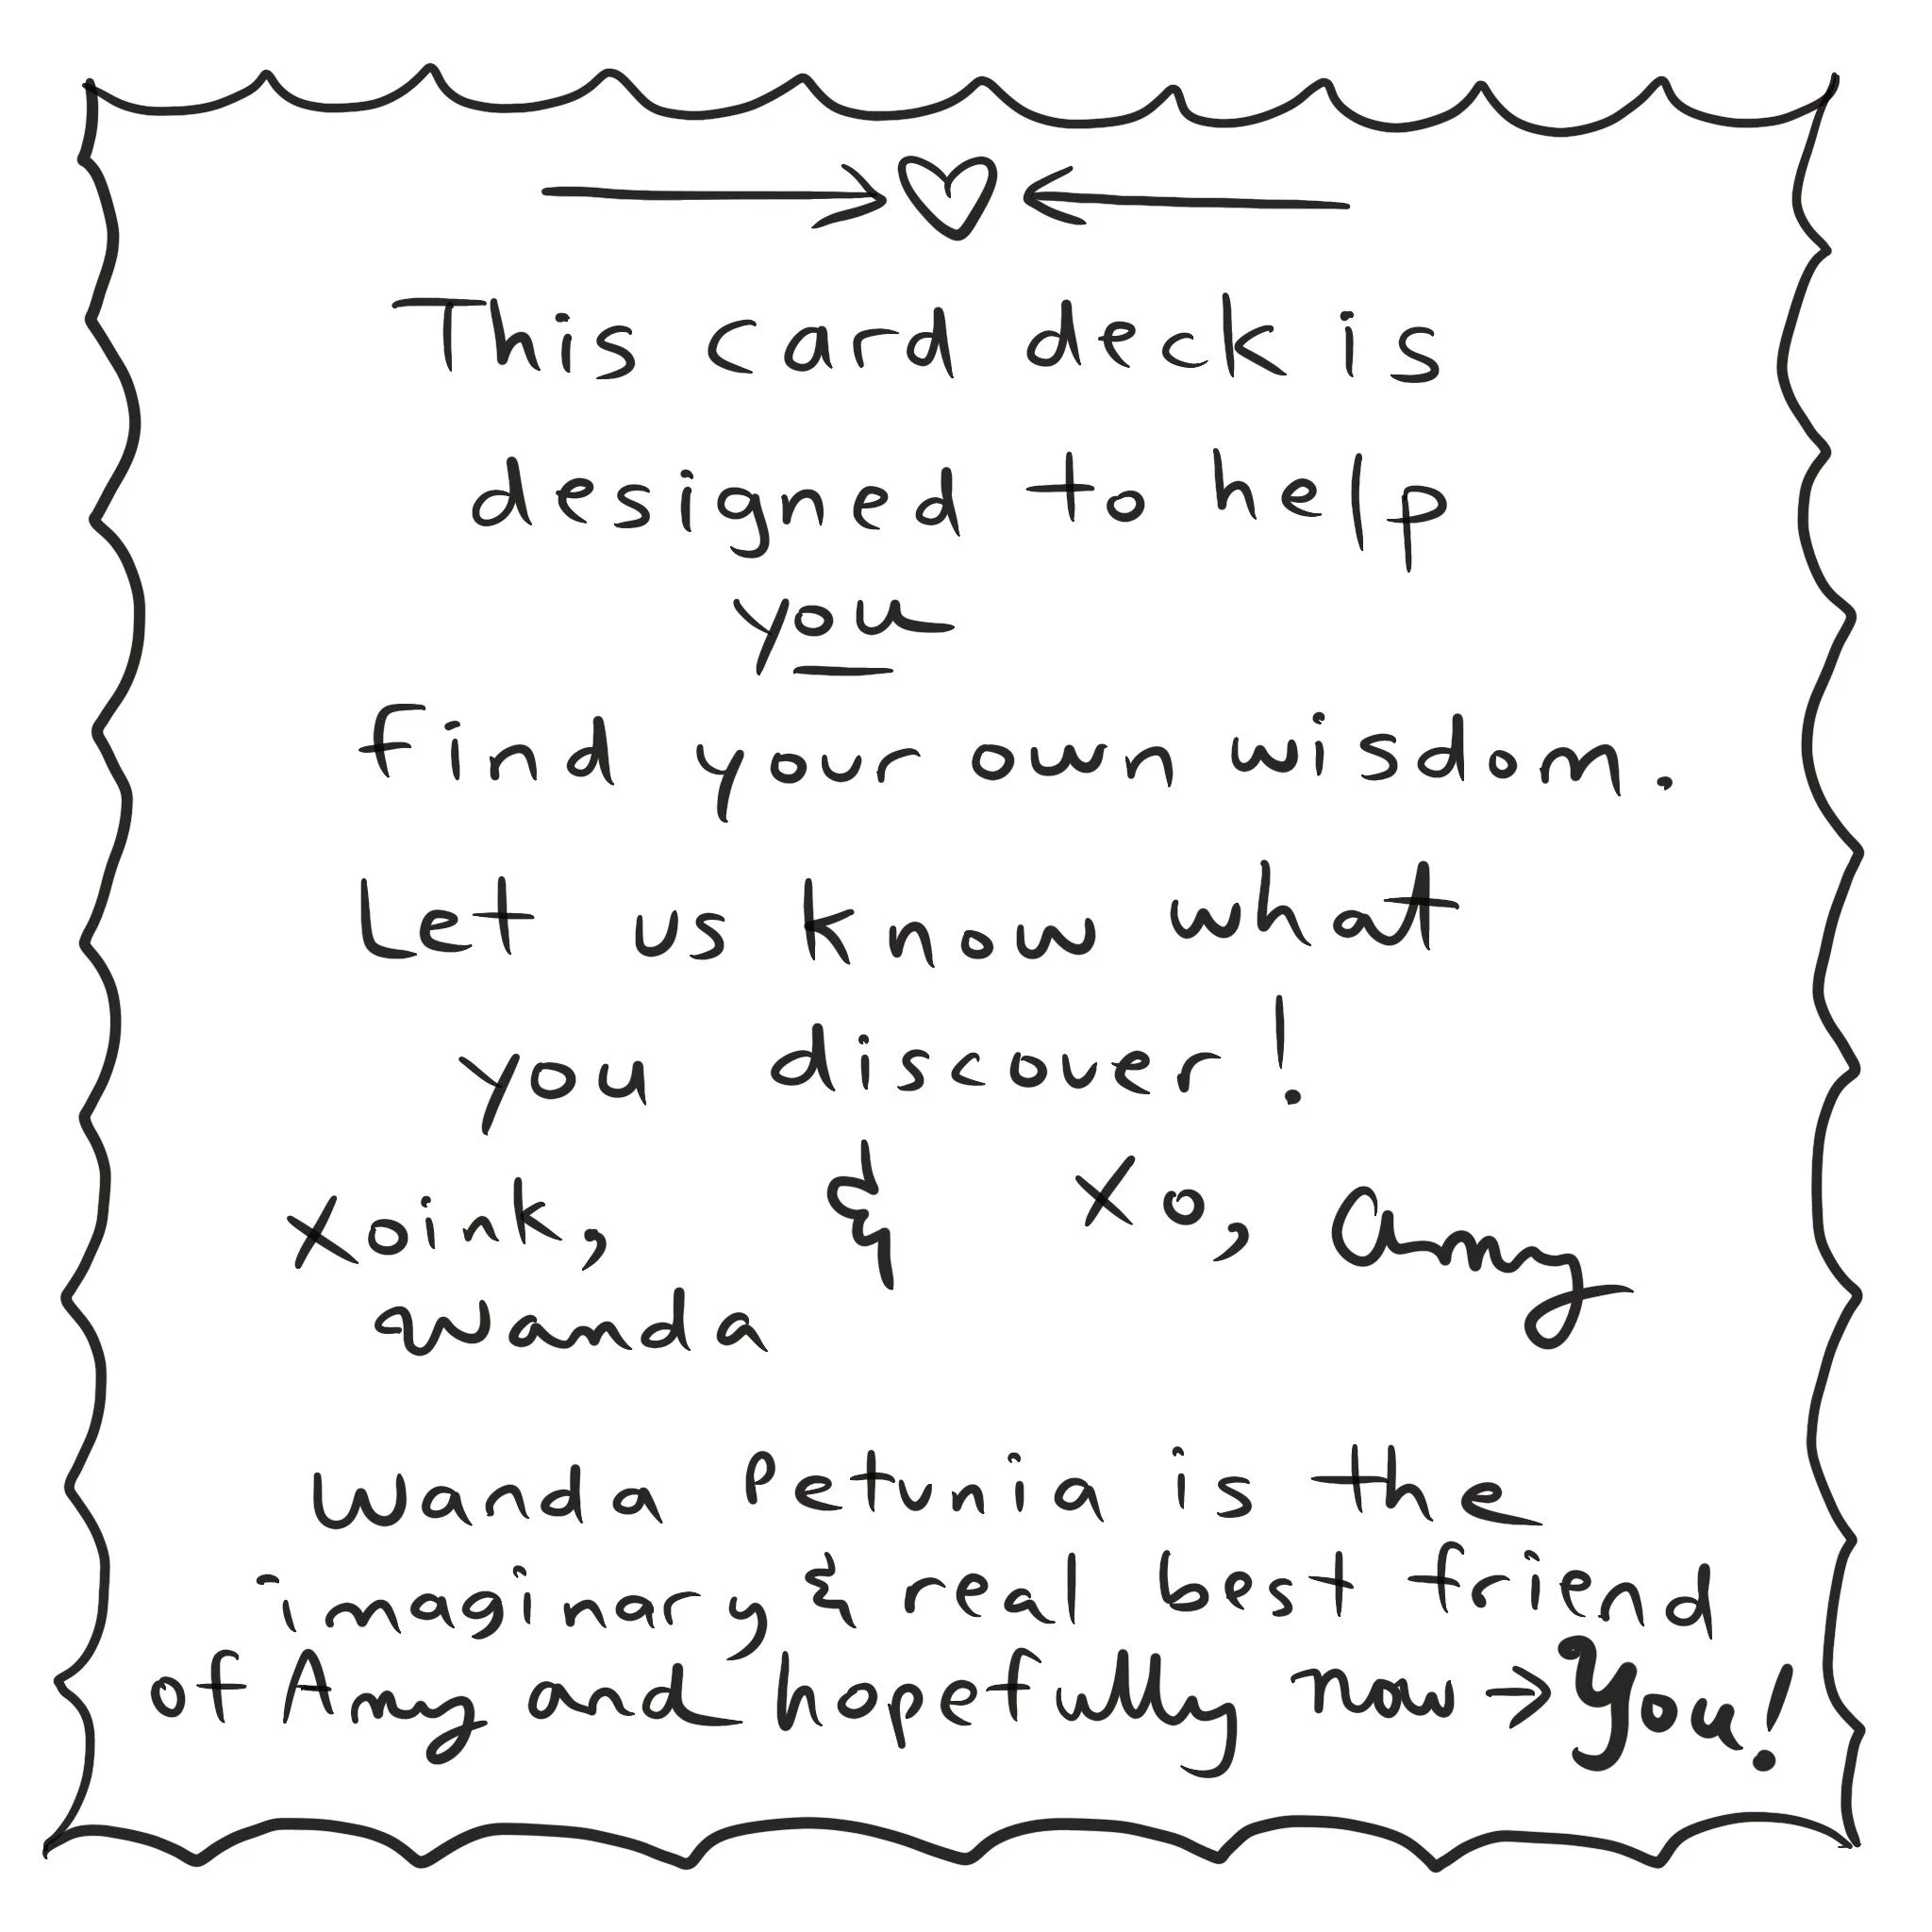 This card deck is
designed to help
you
find your own wisdom.
Let us know what
you discover!
Xoink, & XO, Amy
Wanda
Wanda Petunia is the
imaginary & real best friend
of Amy and hopefully now → You!